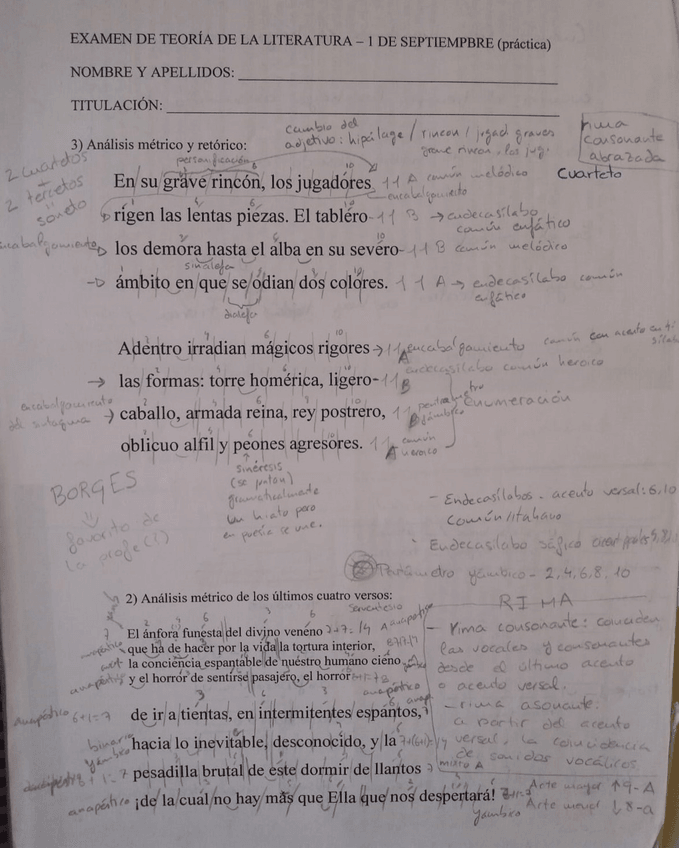 EXAMEN DE TEORÍA DE LA LITERATURA – 1 DE SEPTIEMPBRE (práctica)
NOMBRE Y APELLIDOS:
TITULACIÓN:
cambio del
adjetivo: hipálage / rincon / jugad graves
grave rincon, los jug.
rima
consonante
abrazada
3) Análisis métrico y retórico:
2 cuartetos
2 tercetos
soneto
personificación
Cuarteto
En su grave rincón, los jugadores 11 A común melódico
encabalgamiento
rigen las lentas piezas. El tablero 11 B → endecasílabo
común enfático
encabalgamiento
los demora hasta el alba en su severo 11 B común melódico
sinalefa
ámbito en que se odian dos colores. 11 A → endecasílabo común
enfático
dialefa
Adentro irradian mágicos rigores → 11 A encabalgamiento común con acento en
endecasílabo común heroico
→ las formas: torre homérica, ligero 11 B
encabalgamiento
de sintagma
caballo, armada reina, rey postrero, 11 B yámbico
enumeración
oblicuo alfil y peones agresores. 11 A común
heroico
sinéresis
(se juntan)
gramaticalmente
un hiato pero
en poesía se une.
BORGES
favorito de
la profe (!)
- Endecasílabos. acento versal: 6, 10
común/italiano
Endecasílabo sáfico
Pentámetro yámbico - 2, 4, 6, 8, 10
2) Análisis métrico de los últimos cuatro versos:
RIMA
Serventesio
El ánfora funesta del divino veneno 7+7: 14 A anapéstico
que ha de hacer por la vida la tortura interior,
la conciencia espantable de nuestro humano cieno
y el horror de sentirse pasajero, el horror
- Rima consonante: coinciden
las vocales y consonantes
desde el último acento
o acento versal.
- rima asonante:
a partir del acento
versal. la coincidencia
de sonidos vocálicos.
anapéstico 6+1=7
de ir a tientas, en intermitentes espantos,
binario
yámbico
hacia lo inevitable, desconocido, y la
pesadilla brutal de este dormir de llantos 7 mixto A
anapéstico
¡de la cual no hay más que Ella que nos despertará!
yámbico
Arte mayor ↑9-A
Arte menor ↓8-a